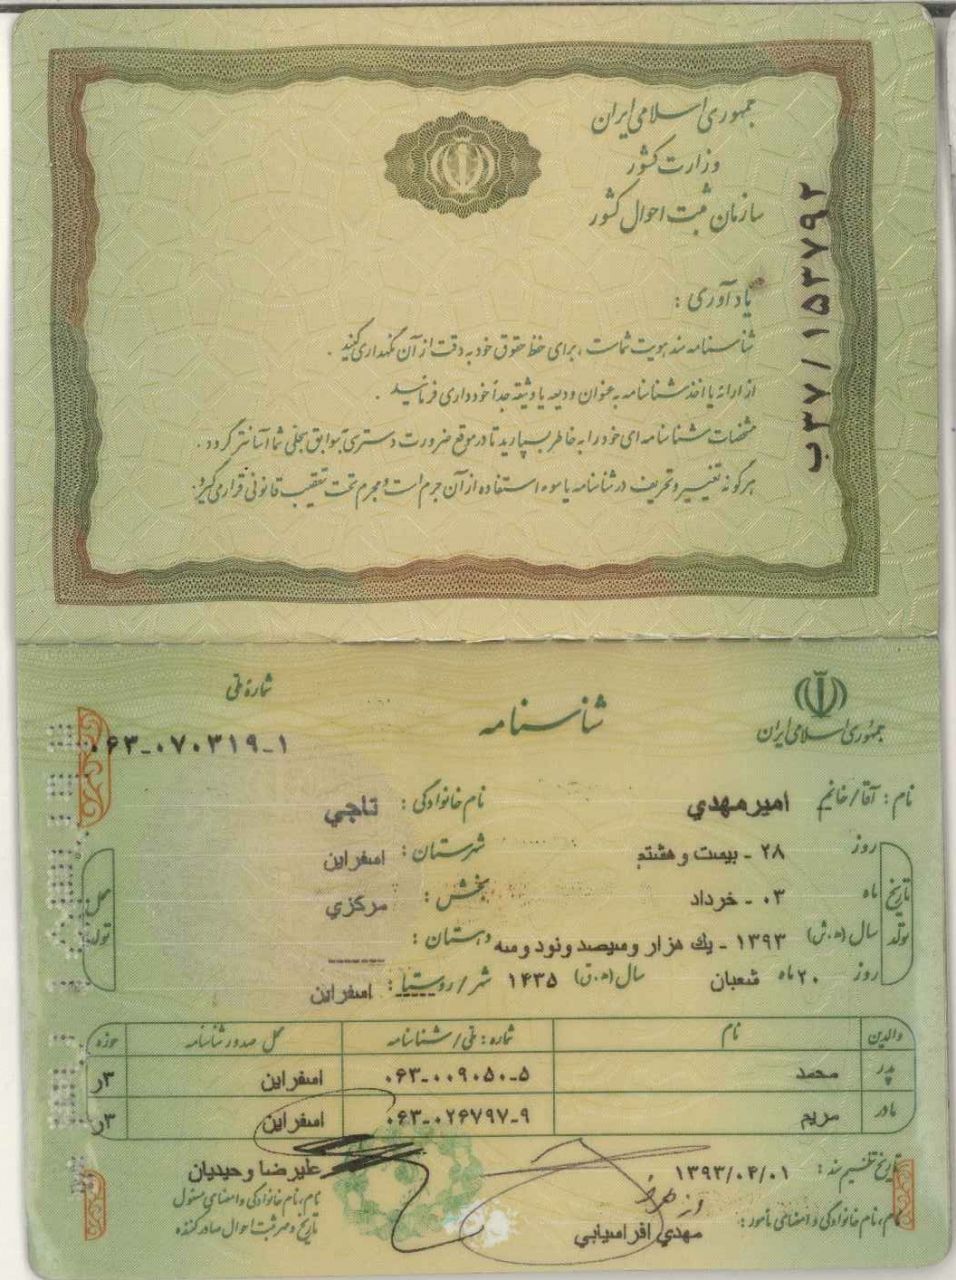 جمهوری اسلامی ایران
وزارت کشور
سازمان ثبت احوال کشور
ب۳۷/۱۵۳۷۹۲
یادآوری :
شناسنامه سند هویت شماست ، برای حفظ حقوق خود به دقت از آن نگهداری کنید .
از ارائه یا اخذ شناسنامه به عنوان ودیعه یا وثیقه جداً خودداری فرمائید .
مشخصات شناسنامه ای خود را به خاطر بسپارید تا در موقع ضرورت دسترسی به سوابق سجلی شما آسانتر گردد .
هرگونه تغییر و تحریف در شناسنامه یا سوء استفاده از آن جرم است و مجرم تحت تعقیب قانونی قرار می گیرد.
جمهوری اسلامی ایران
شناسنامه
شماره ملی
۰۶۳-۰۷۰۳۱۹-۱
نام : آقا/خانم امیرمهدي نام خانوادگی : تاجي
تاریخ تولد
روز ۲۸ - بیست و هشتم
ماه ۰۳ - خرداد
سال (ه.ش) ۱۳۹۳ - یك هزار وسیصد ونود وسه
روز ۲۰ ماه شعبان سال (ه.ق) ۱۴۳۵
محل تولد
شهرستان : اسفراین
بخش : مرکزي
دهستان : -----
شهر/روستا : اسفراین
والدین نام شماره : ملی/شناسنامه محل صدور شناسنامه حوزه
پدر محمد ۰۶۳-۰۰۹۰۵۰-۵ اسفراین ۳ر
مادر مریم ۰۶۳-۰۲۶۷۹۷-۹ اسفراین ۳ر
تاریخ تنظیم سند : ۱۳۹۳/۰۴/۰۱
نام، نام خانوادگی و امضای مأمور : مهدي افراسیابي
علیرضا وحیدیان
نام، نام خانوادگی و امضای مسئول
تاریخ و مهر ثبت احوال صادرکننده